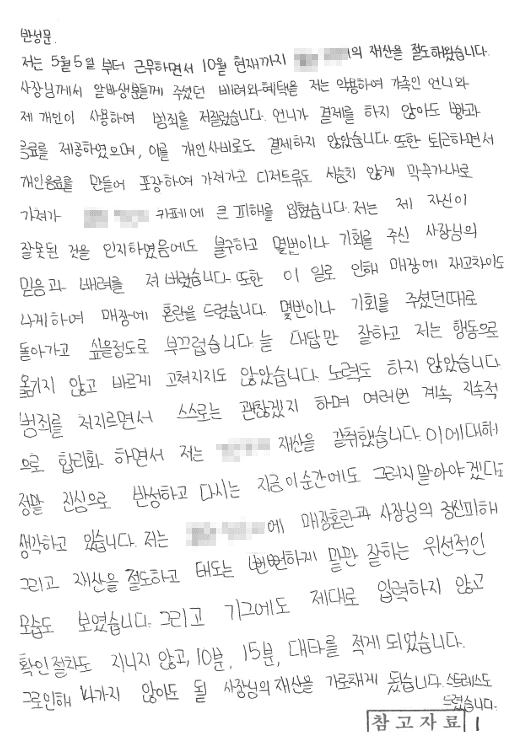 반성문.
저는 5월5일 부터 근무하면서 10월 현재까지 의 재산을 절도해왔습니다.
사장님께서 알바생분들께 주셨던 배려와혜택을 저는 악용하여 가족인 언니와
제 개인이 사용하여 범죄를 저질렀습니다. 언니가 결제를 하지 않아도 빵과
음료를 제공하였으며, 이를 개인사비로도 결제하지 않았습니다. 또한 퇴근하면서
개인음료를 만들어 포장하여 가져가고 디저트류도 서슴치 않게 막무가내로
가져가 카페에 큰 피해를 입혔습니다. 저는 제 자신이
잘못된 것을 인지하였음에도 불구하고 몇번이나 기회를 주신 사장님의
믿음과 배려를 져 버렸습니다. 또한 이 일로 인해 매장에 재고차이도
나게하여 매장에 혼란을 드렸습니다. 몇번이나 기회를 주셨던때로
돌아가고 싶을정도로 부끄럽습니다. 늘 대답만 잘하고 저는 행동으로
옮기지 않고 바르게 고쳐지지도 않았습니다. 노력도 하지 않았습니다.
범죄를 저지르면서 스스로는 괜찮겠지 하며 여러번 계속 지속적
으로 합리화 하면서 저는 재산을 갈취했습니다. 이에대해
정말 진심으로 반성하고 다시는 지금이순간에도 그러지말아야겠다
생각하고 있습니다. 저는 에 매장혼란과 사장님의 정신피해
그리고 재산을 절도하고 태도는 뻔뻔하게 말만 잘하는 위선적인
모습도 보였습니다. 그리고 기구에도 제대로 입력하지 않고
확인절차도 지니지 않고, 10분, 15분, 대타를 적게 되었습니다.
그로인해 나가지 않아도 될 사장님의 재산을 가로채게 됐습니다. 스트레스도
드렸습니다.
참고자료 1